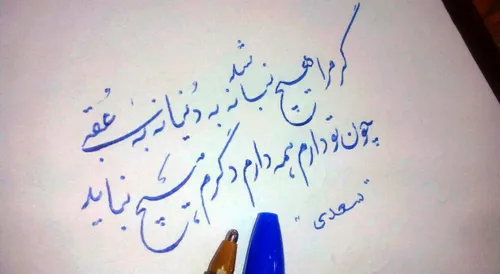 گر مرا هیچ نباشد نه به دنیا نه به عقبی
چون تو دارم همه دارم دگرم هیچ نباید
"سعدی"